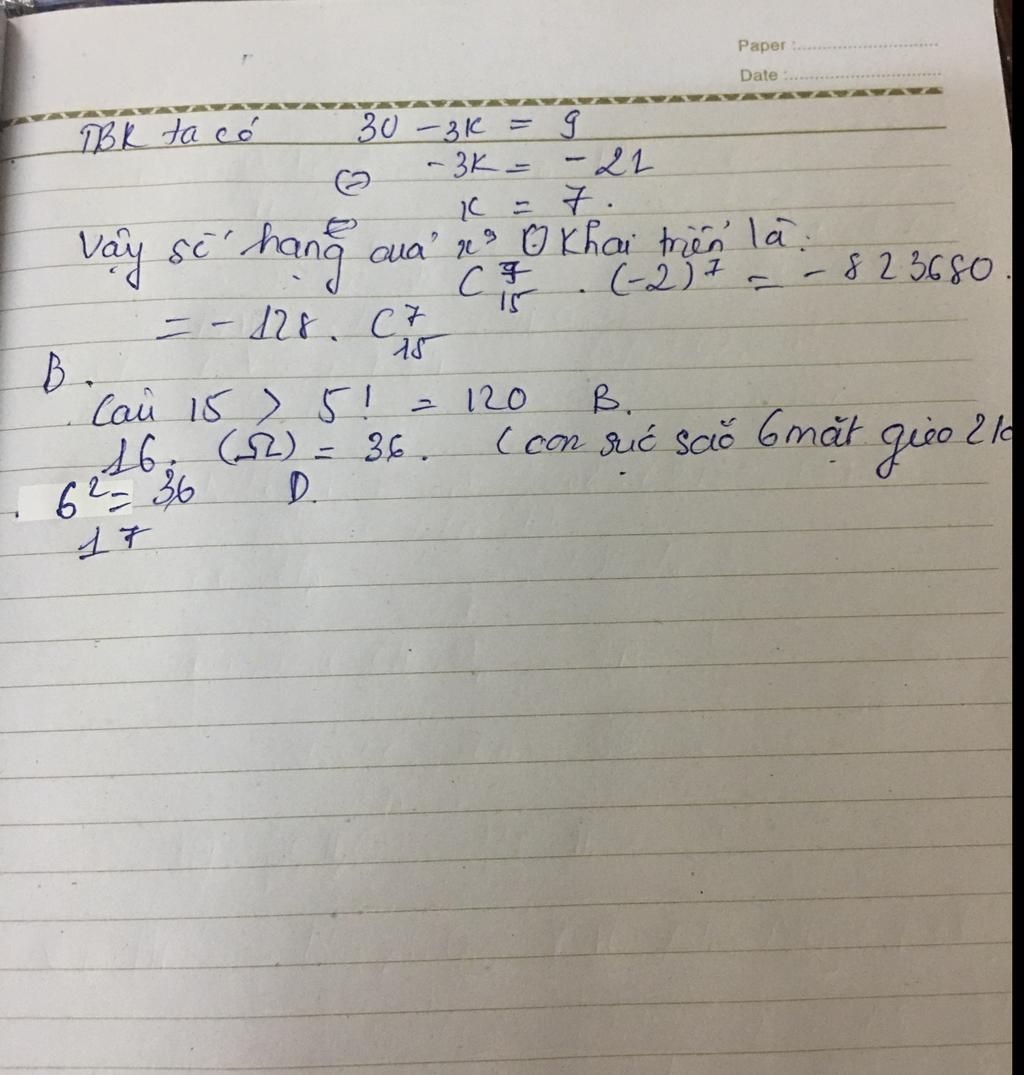 Paper :
Date :
TBR ta có 30 - 3K = 9
⇔ -3K = -21
K = 7.
Vậy số hạng của x⁹ khai triển là:
C⁷₁₅ . (-2)⁷ = - 823680.
= -128. C⁷₁₅
B.
Câu 15 > 5! = 120 B.
16. (Ω) = 36. (con súc sắc 6 mặt gieo 2
6² = 36 D.
17